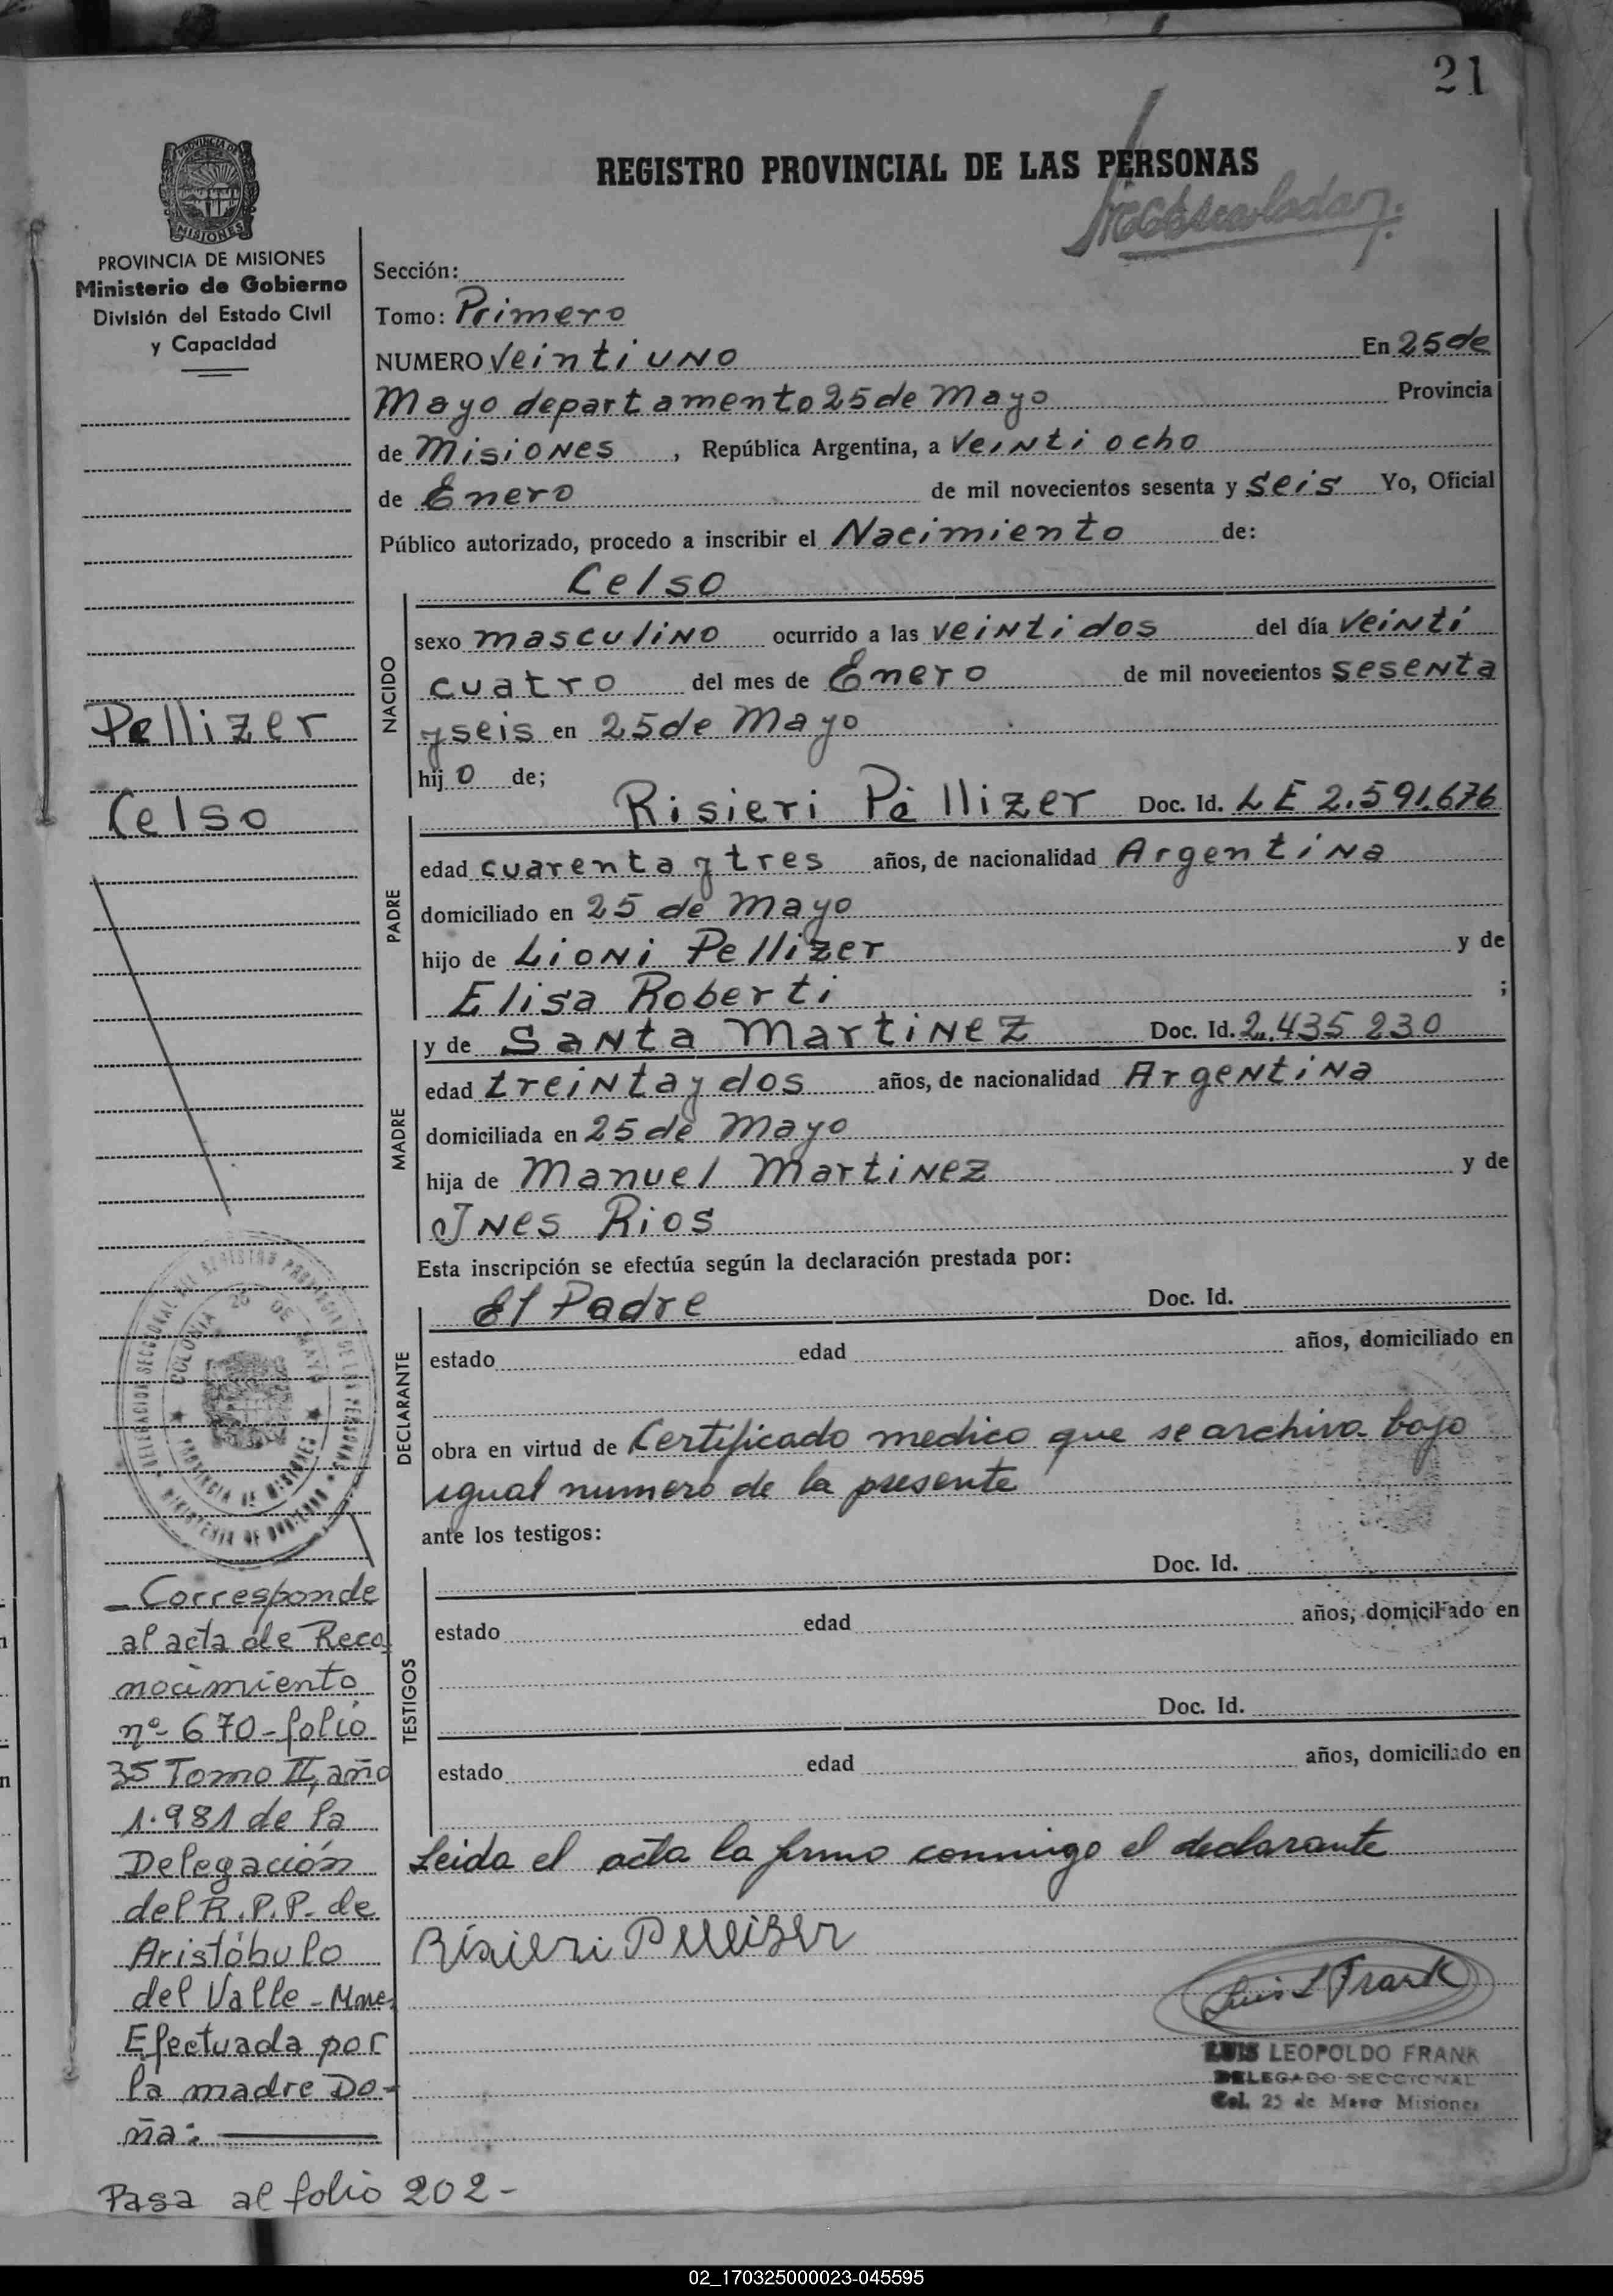 21
REGISTRO PROVINCIAL DE LAS PERSONAS
PROVINCIA DE MISIONES
Ministerio de Gobierno
División del Estado Civil
y Capacidad
Sección:
Tomo: Primero
NUMERO Veinti uno En 25 de
Mayo departamento 25 de Mayo Provincia
de Misiones, República Argentina, a Veinti ocho
de Enero de mil novecientos sesenta y seis Yo, Oficial
Público autorizado, procedo a inscribir el Nacimiento de:
Celso
NACIDO
sexo masculino ocurrido a las veinti dos del día veinti
cuatro del mes de Enero de mil novecientos sesenta
y seis en 25 de Mayo
hij o de;
Pellizer
Celso
PADRE
Risieri Pellizer Doc. Id. L E 2.591.676
edad cuarenta y tres años, de nacionalidad Argentina
domiciliado en 25 de Mayo
hijo de Lioni Pellizer y de
Elisa Roberti ;
MADRE
y de Santa Martinez Doc. Id. 2.435 230
edad treinta y dos años, de nacionalidad Argentina
domiciliada en 25 de Mayo
hija de Manuel Martinez y de
Ines Rios
Esta inscripción se efectúa según la declaración prestada por:
DECLARANTE
El Padre Doc. Id.
estado edad años, domiciliado en
obra en virtud de Certificado medico que se archiva bajo
igual numero de la presente
ante los testigos:
TESTIGOS
Doc. Id.
estado edad años, domiciliado en
Doc. Id.
estado edad años, domiciliado en
Leida el acta la firmo conmigo el declarante
Risieri Pellizer
Luis L Frank
LUIS LEOPOLDO FRANK
DELEGADO SECCIONAL
Col. 25 de Mayo Misiones
DELEGACION SECCIONAL DEL REGISTRO PROVINCIAL DE LAS PERSONAS
COLONIA 25 DE MAYO
PROVINCIA DE MISIONES
MINISTERIO DE GOBIERNO
Corresponde
al acta de Reco-
nocimiento
nº- 670-folio
35 Tomo II, año
1.981 de la
Delegación
del R.P.P. de
Aristóbulo
del Valle - Mnes
Efectuada por
la madre Do-
ña:
Pasa al folio 202-
02_170325000023-045595